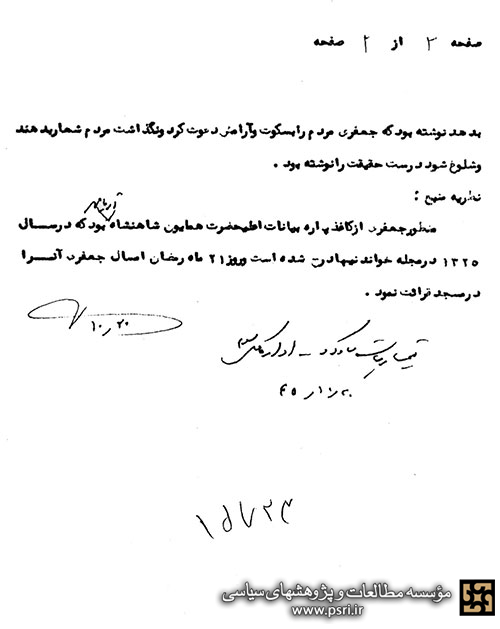 صفحه ۲ از ۲ صفحه
بدهد نوشته بود که جعفری مردم را بسکوت و آرامش دعوت کرد و نگذاشت مردم شعار بدهند
و شلوغ شود درست حقیقت را نوشته بود .
نظریه منبع :
منظور جعفری از کاغذ پاره بیانات اعلیحضرت همایون شاهنشاه بود که در سال
۱۳۲۵ در مجله خواندنیها درج شده است و روز ۲۱ ماه رمضان امسال جعفری آنرا
در مسجد قرائت نمود .
۱۰٫۲۰
۴۵
مؤسسه مطالعات و پژوهشهای سیاسی
www.psri.ir